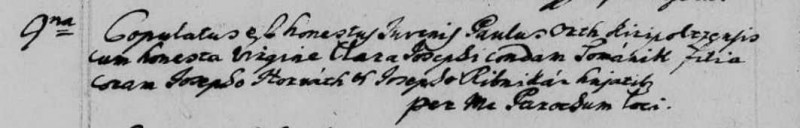 9na Copulatus est honestus Juvenis Paulus Orth
cum honesta Virgine Clara Josephi condam Tománik filia
coram Josepho Horvath et Josepho Ribnikár hujatib
per me Parochum loci.